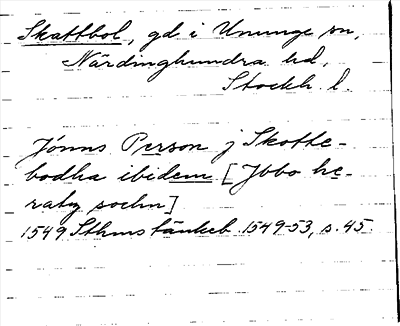 Skattbol, gd i Ununge sn,
Närdinghundra hd,
Stockh. l.
Jönns Person j Skotte-
bodha ibidem [Ybbo he-
ratz sochn]
1549 Sthms tänkeb. 1549-53, s. 45.